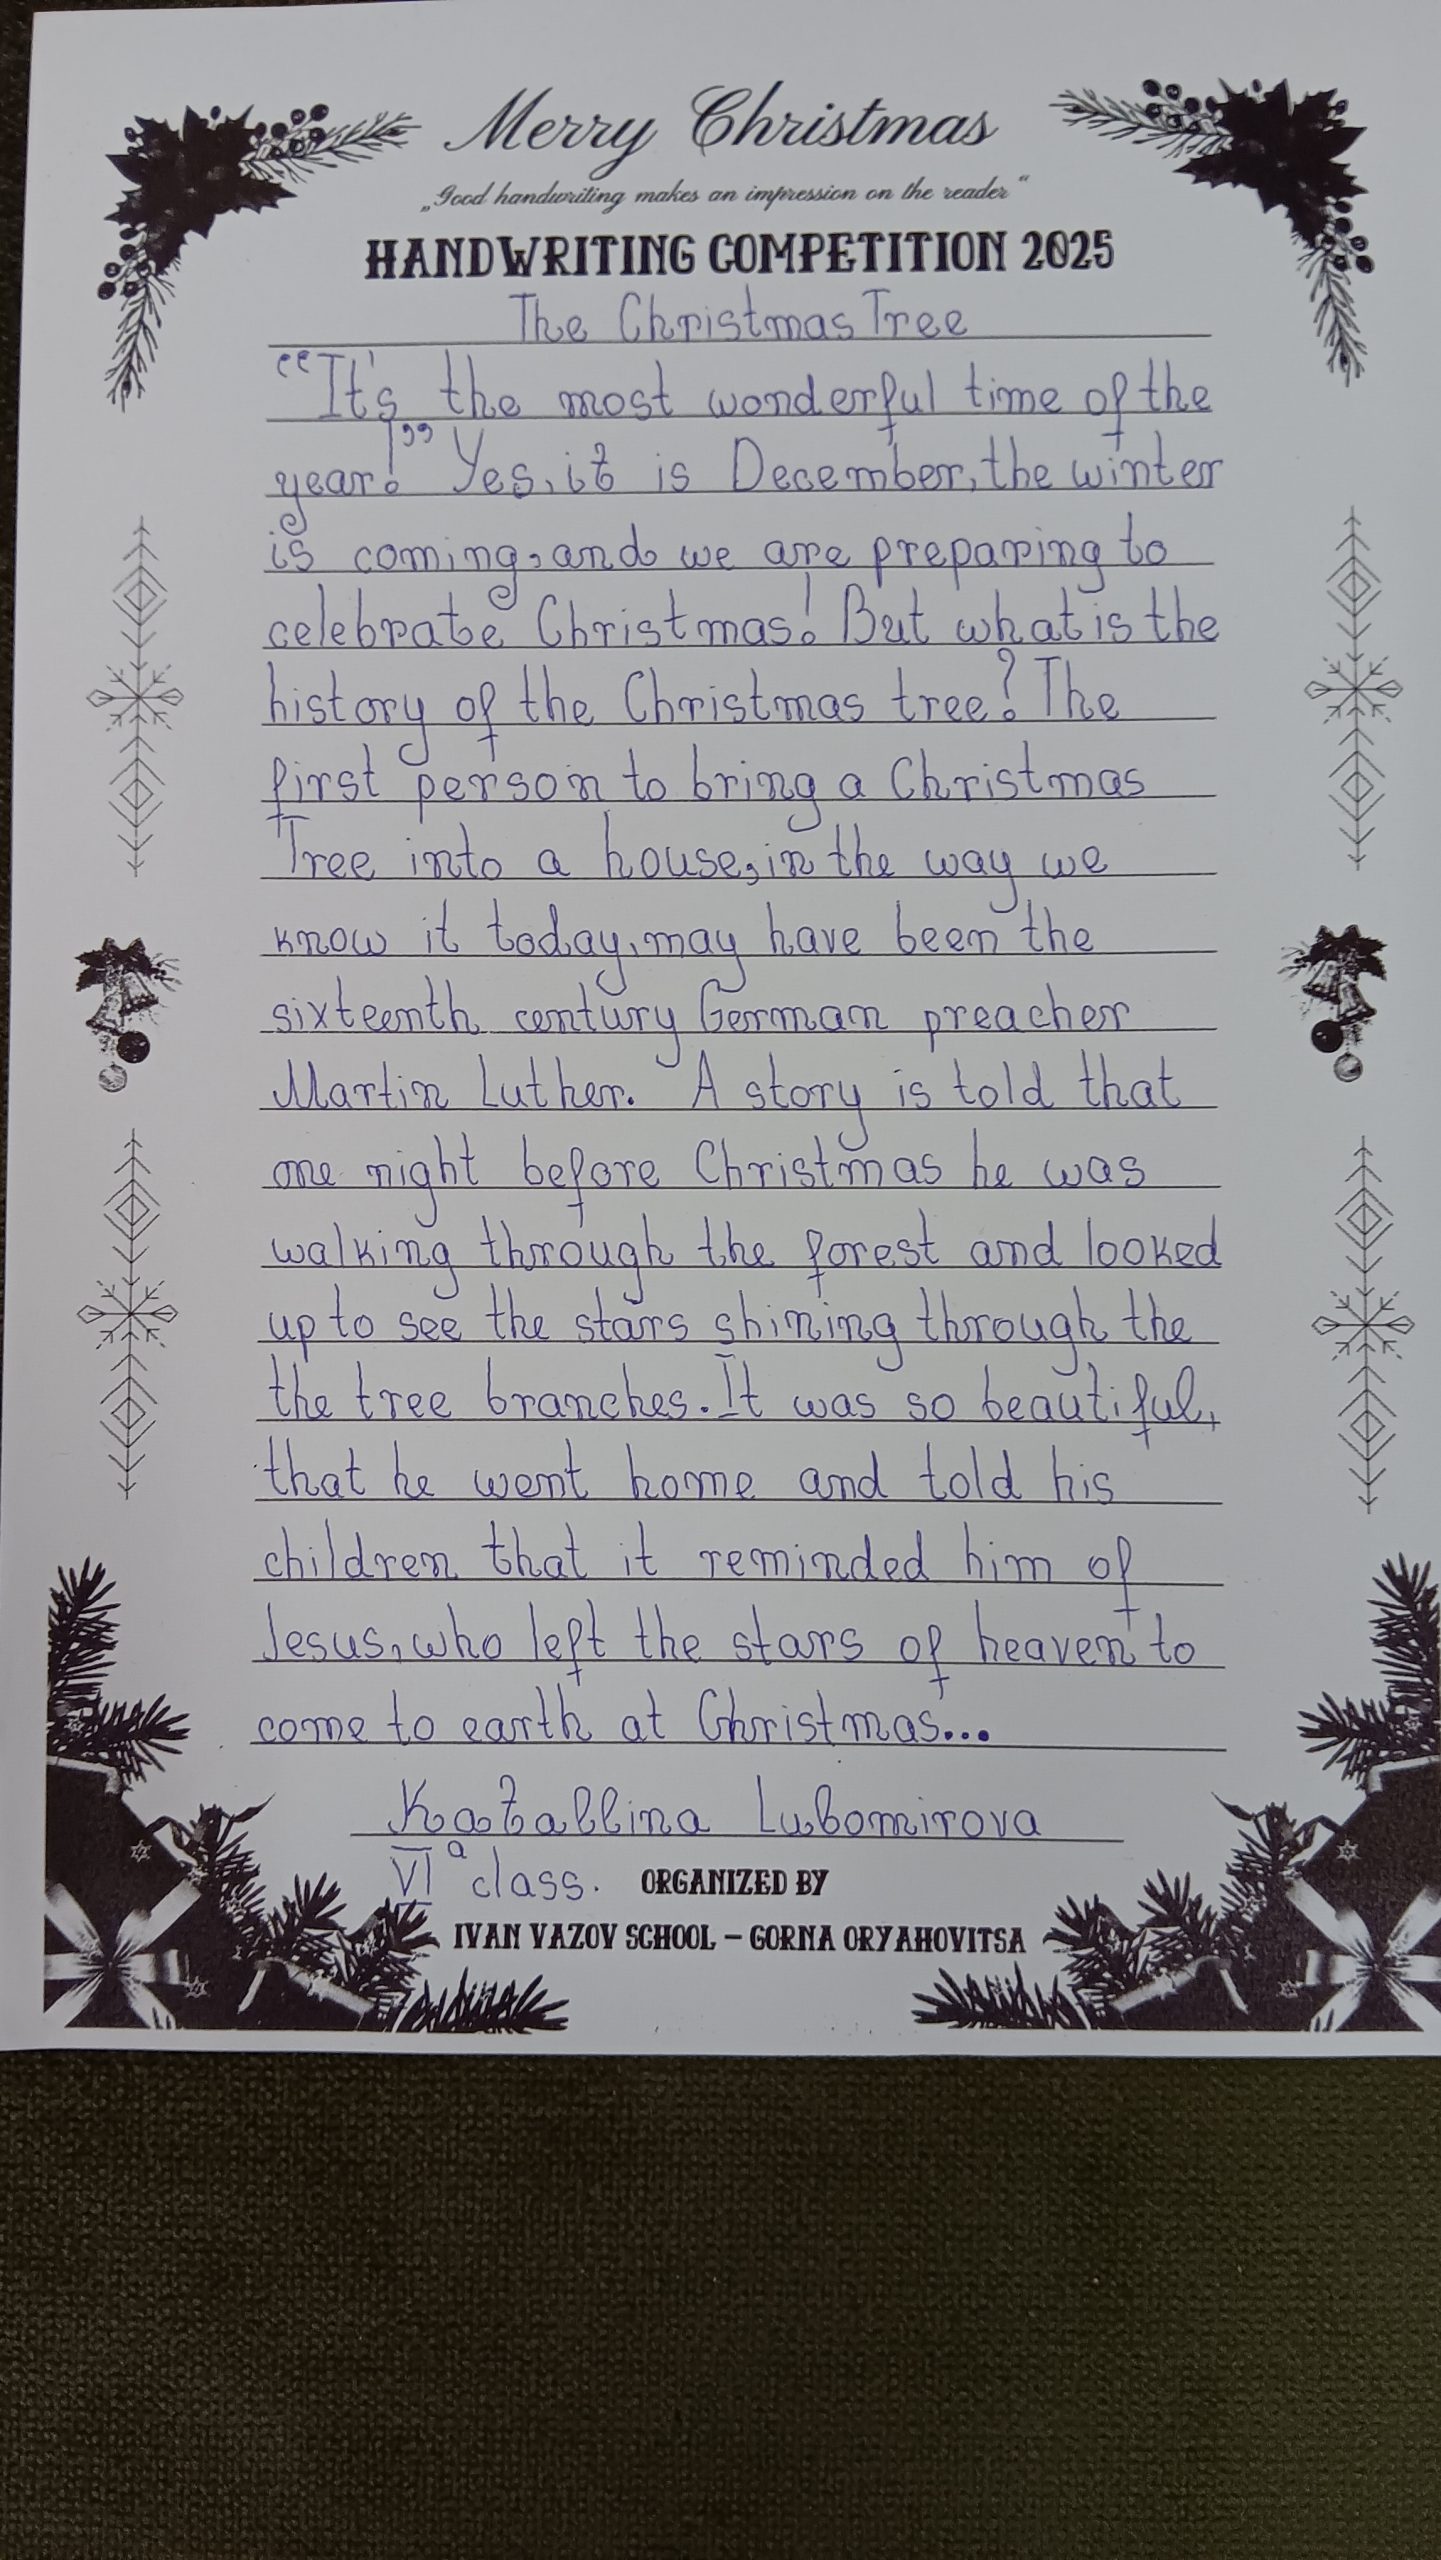 Merry Christmas
„Good handwriting makes an impression on the reader“
HANDWRITING COMPETITION 2025
The Christmas Tree
“It's the most wonderful time of the
year!” Yes, it is December, the winter
is coming, and we are preparing to
celebrate Christmas! But what is the
history of the Christmas tree? The
first person to bring a Christmas
Tree into a house, in the way we
know it today, may have been the
sixteenth century German preacher
Martin Luther. A story is told that
one night before Christmas he was
walking through the forest and looked
up to see the stars shining through the
the tree branches. It was so beautiful,
that he went home and told his
children that it reminded him of
Jesus, who left the stars of heaven to
come to earth at Christmas...
Katallina Lubomirova
VI a class.
ORGANIZED BY
IVAN VAZOV SCHOOL – GORNA ORYAHOVITSA